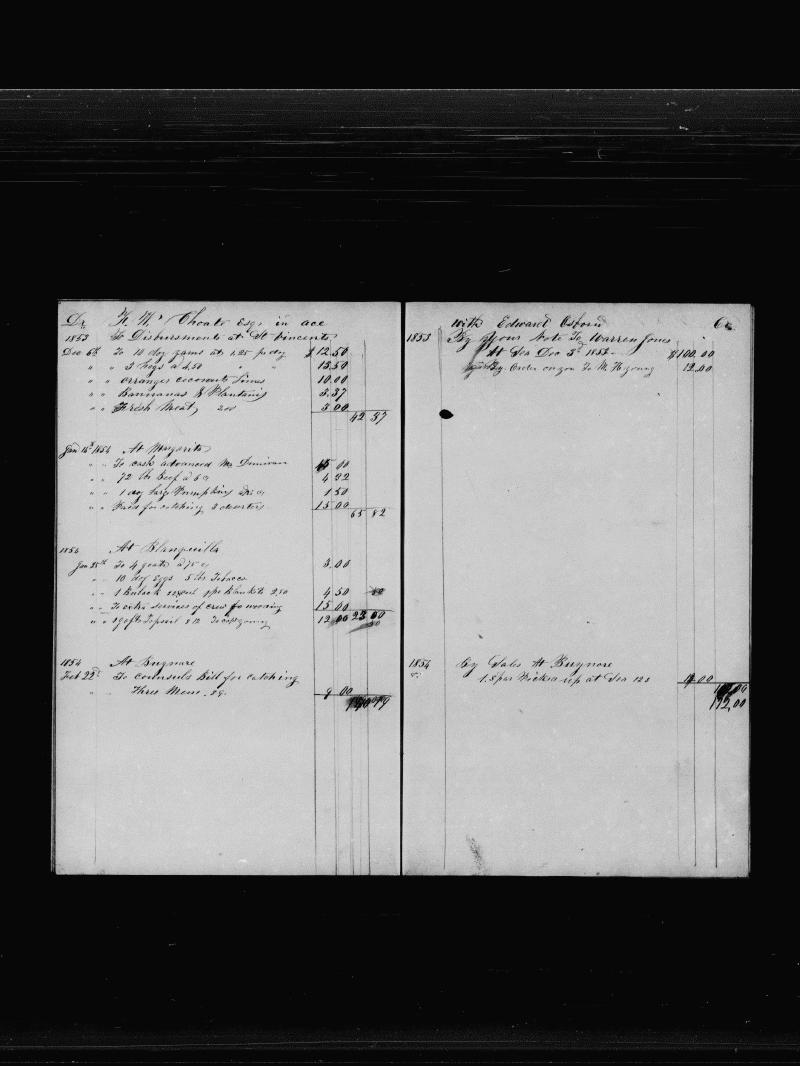 Dr. H. W. Choate Esq. in acc
1853 To Disbursments at St Vincents
Dec 6th To 10 doz yams at 1.25 pr doz $12,50
" " 3 hogs a 4,50 " " 13,50
" " Orranges coconuts Limes 10.00
" " Bannanas & Plantains 3,37
" " Fresh Meat, 3 00
42 37
Jan 14th 1854 At Margarita
" " To cash advanced Mr 00
" " 72 lbs Beef a 6 c 4 32
" " 1 doz large Pumpkins 1 50
" " Paid for catching 3 deserters 15.00
65 82
1854 At Blanquilla
Jan 28th To 4 goats a 75 c 3.00
" " 10 doz eggs 5 lbs Tobacco
" " 1 Bullock 1 pr Blankets 2,50 4 50
" " To extra services of crew for 15 00
" " 12 00 22 50
1854 At Buynare
Feb 22d To counsuls Bill for catching
" Three Mens 9 00
with Edward Osborn Cr
1853 By your Note To Warren Jones
At Sea Dec 3d 1853 $100.00
By Order on you To M. H young 12,00
1854 By Sales At Buynare
1 Spar Picked up at Sea 00
112,00